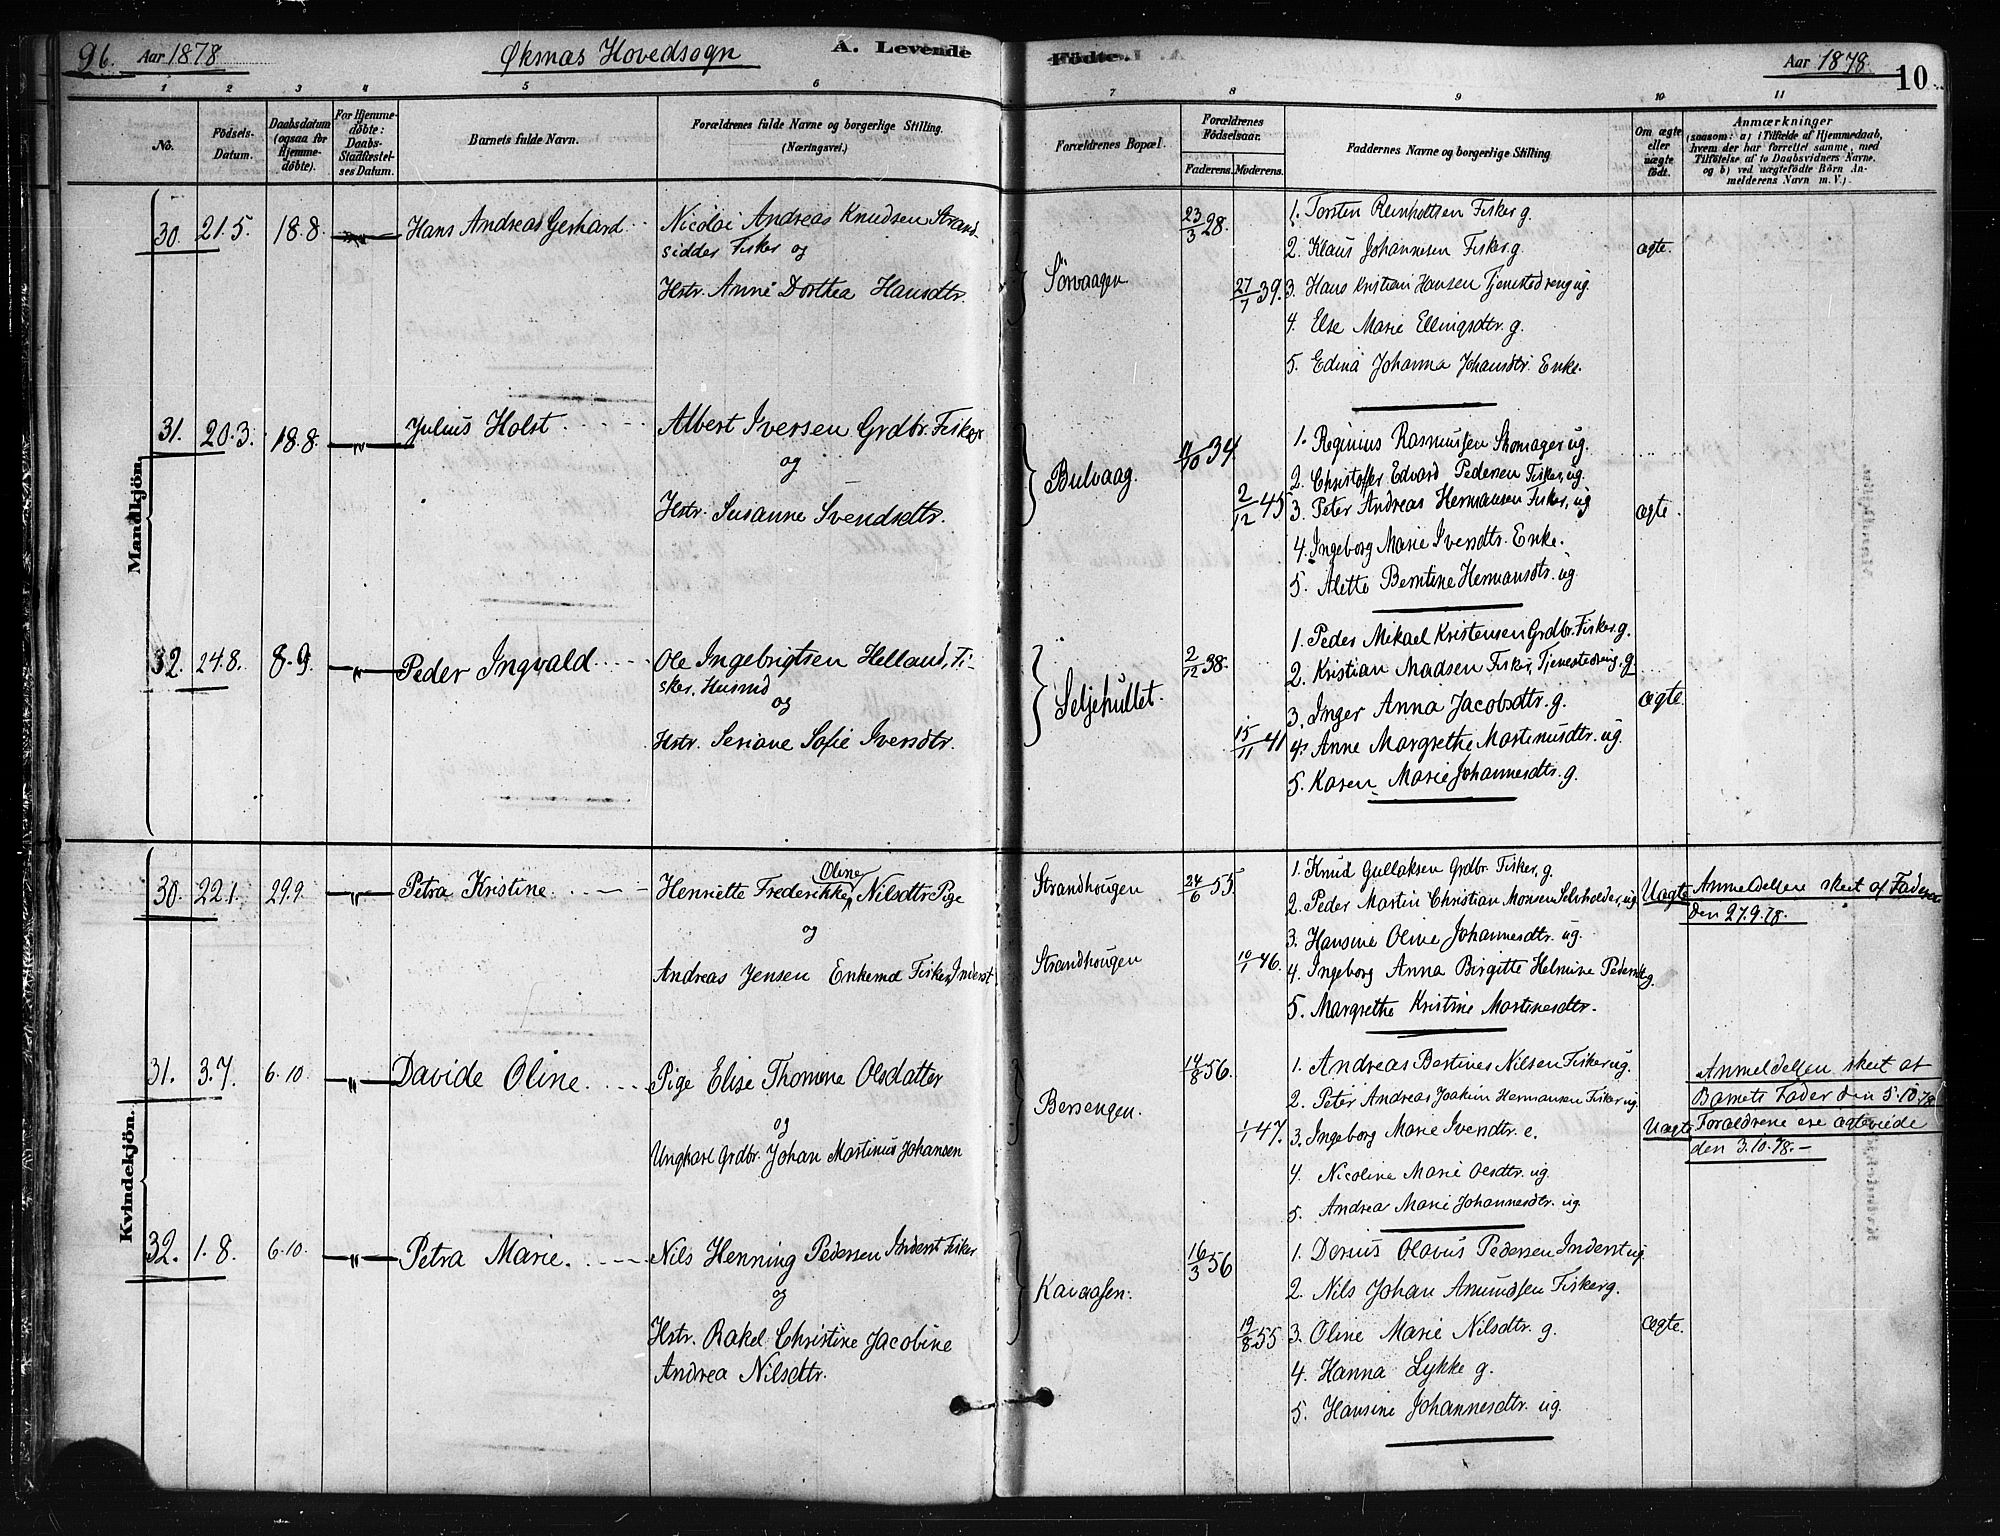 96. Aar 1878 Øksnæs Hovedsogn A. Levende Fødte. Aar 1878. 10
1 2 3 4 5 6 7 8 9 10 11
No. Födsels-Datum. Daabsdatum (ogsaa for Hjemme-döbte). For Hjemme-døbte: Daabs-Stadfæstel-ses Datum. Barnets fulde Navn. Forældrenes fulde Navne og borgerlige Stilling. (Næringsvei.) Forældrenes Bopæl. Forældrenes Födselsaar. Faderens. Moderens. Faddernes Navne og borgerlige Stilling Om ægte eller uægte födt. Anmærkninger
(saasom: a) i Tilfælde af Hjemmedaab,
hvem der har forrettet samme, med
Tilföielse af to Daabsvidners Navne,
og b) ved uægtefödte Börn An-
melderens Navn m. V.).
Mandkjön.
30. 21.5. 18.8. Hans Andreas Gerhard Nicolai Andreas Knudsen Strand-
sidder Fisker og
Hstr. Anne Dorthea Hansdtr.
Sörvaagen 23/3 28. 27/7 39.
1. Torsten Reinholtsen Fisker g.
2. Klaus Johannesen Fisker g.
3. Hans Kristian Hansen Tjenstedreng ug.
4. Else Marie Ellingsdtr. g.
5. Edina Johanna Johansdtr. Enke.
ægte.
31. 20.3. 18.8. Julius Holst Albert Iversen Grdbr. Fisker
og
Hstr. Susanne Svendsdtr.
Bulvaag. 34 2/12 45
1. Reginius Rasmussen Skomager ug.
2. Christoffer Edvard Pedersen Fisker, ug.
3. Peter Andreas Hermansen Fisker, ug
4. Ingeborg Marie Iversdtr. Enke.
5. Alette Berntine Hermansdtr. ug.
ægte.
32. 24.8. 8.9. Peder Ingvald Ole Ingebrigtsen Helland, Fi-
sker, Husmd
og
Hstr. Seriane Sofie Iversdtr.
Seljehullet. 2/12 38. 15/11 41
1. Peder Mikael Kristensen Grdbr. Fisker g.
2. Kristian Madsen Fisker, Tjenestedreng, g
3. Inger Anna Jacobsdtr. g.
4. Anne Margrethe Martinusdtr. ug.
5. Karen Marie Johannesdtr. g.
ægte.
Kvindekjön.
30. 22.1. 29.9. Petra Kristine Henriette Frederikke Oline Nilsdtr. Pige
og
Andreas Jensen Enkemd Fisker, Inderst
Strandhougen 24/6 55.
Strandhougen 10/1 46.
1. Knud Gullaksen Grdbr. Fisker, g.
2. Peder Martin Christian Monsen Selvholder, ug
3. Hansine Oline Johannesdtr. ug.
4. Ingeborg Anna Birgitte Helmine Pedersdtr g.
5. Margrethe Kristine Martinesdtr.
Uægte Anmeldelsen skeet af Faderen
den 27.9.78.
31. 3.7. 6.10. Davide Oline Pige Elise Thomine Olsdatter
og
Ungkarl Grdbr. Johan Martinus Johansen
Bersengen. 14/8 56. 1/1 47.
1. Andreas Bertines Nilsen Fisker ug.
2. Peter Andreas Joakim Hermansen Fisker ug.
3. Ingeborg Marie Iversdtr. e.
4. Nicoline Marie Olsdtr. ug.
5. Andrea Marie Johannesdtr. ug.
Uægte Anmeldelsen skeet af
Barnets Fader den 5.10.78
Forældrene ere ægteviede
den 3.10.78.-
32. 1.8. 6.10. Petra Marie. Nils Henning Pedersen Inderst Fisker
og
Hstr. Rakel Christine Jacobine
Andrea Nilsdtr.
Kavaasen. 16/3 56 19/8 55
1. Dorius Olavus Pedersen Inderst ug
2. Nils Johan Amundsen Fisker g.
3. Oline Marie Nilsdtr. g.
4. Hanna Lykke g.
5. Hansine Johannesdtr. ug.
ægte.